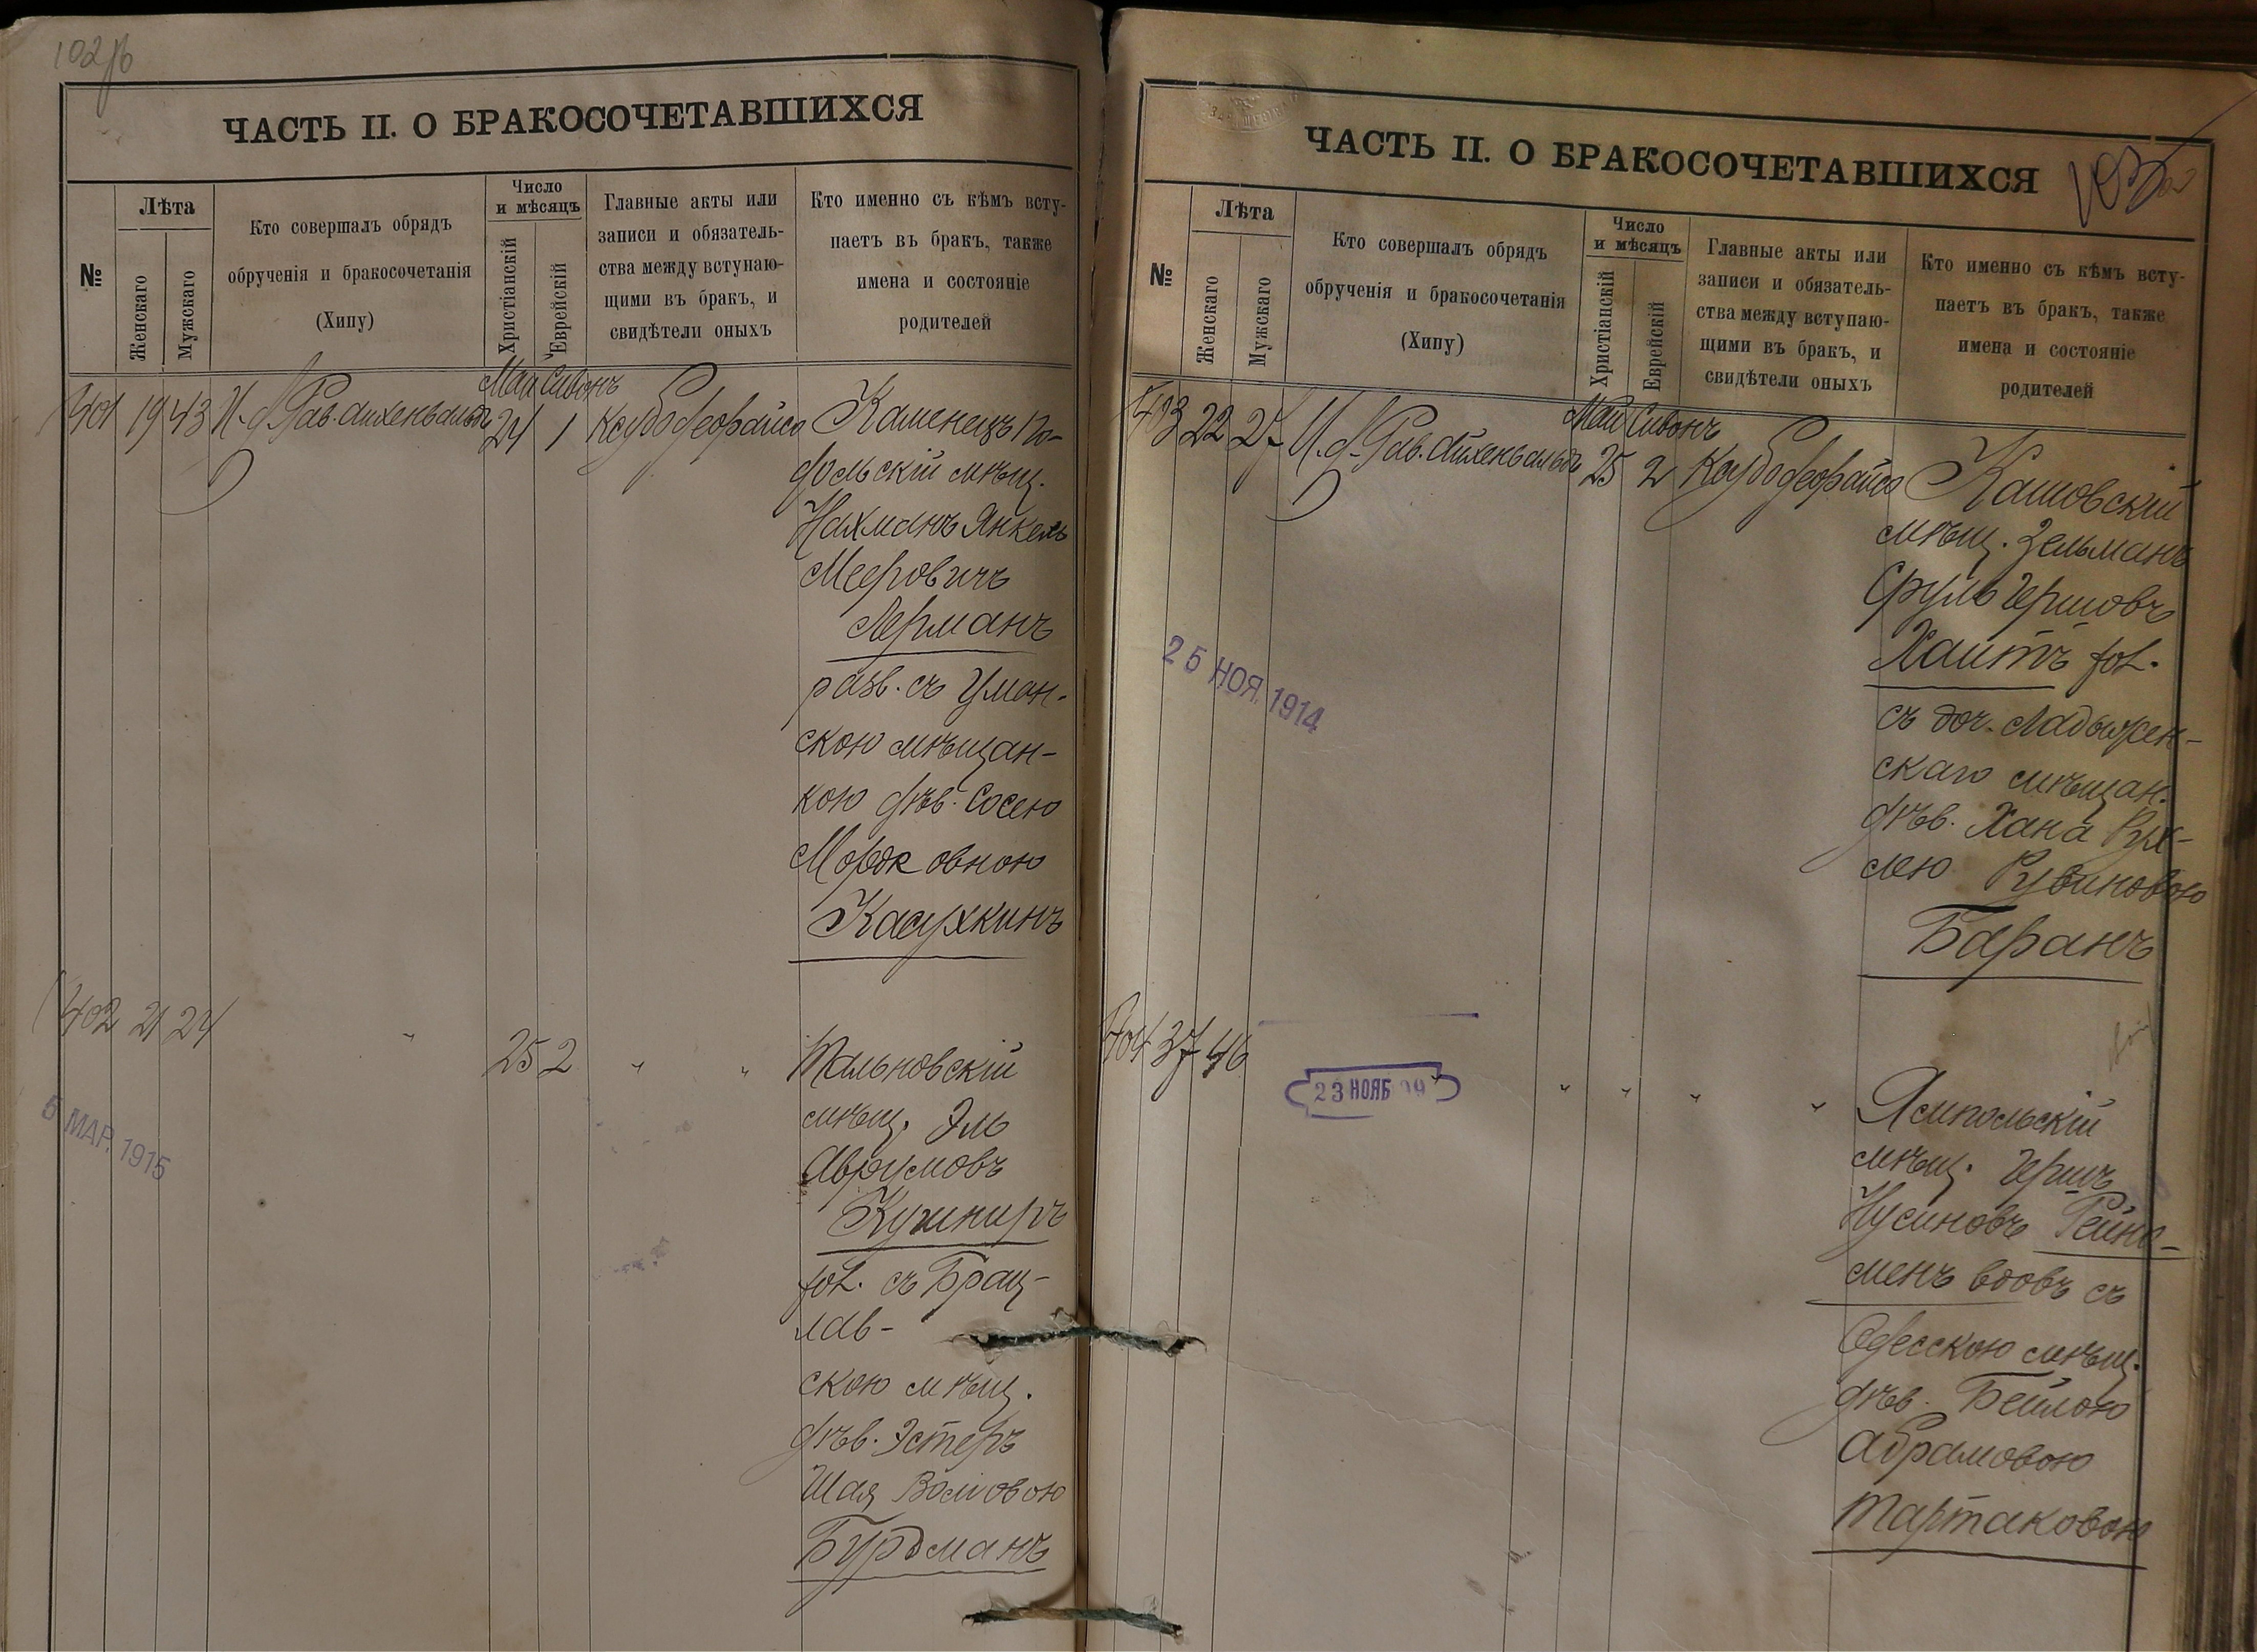 102
ЧАСТЬ II. О БРАКОСОЧЕТАВШИХСЯ
№
Лѣта
Женскаго
Мужскаго
Кто совершалъ обрядъ
обрученія и бракосочетанія
(Хипу)
Число
и мѣсяцъ
Христіанскій
Еврейскій
Главные акты или
записи и обязатель-
ства между вступаю-
щими въ бракъ, и
свидѣтели оныхъ
Кто именно съ кѣмъ всту-
паетъ въ бракъ, также
имена и состояніе
родителей
Май Сивонъ
401 19 43 И. д. Рав. Айхенвальдъ 24 1 Каменецъ По-
дольскій мѣщ.
Нахманъ Янкель
Мееровичъ
Лерманъ
разв. съ Уман-
скою мѣщан-
кою дѣв. Сосею
Мордковною
402 21 24 " 25 2 " " Тальновскій
мѣщ. Эль
Аврумовъ
Кушниръ
хол. съ Брац-
лав-
скою мѣщ.
дѣв. Эстеръ
Шая Волковою
Бурдманъ
5 МАР. 1915
ЧАСТЬ II. О БРАКОСОЧЕТАВШИХСЯ
103
№
Лѣта
Женскаго
Мужскаго
Кто совершалъ обрядъ
обрученія и бракосочетанія
(Хипу)
Число
и мѣсяцъ
Христіанскій
Еврейскій
Главные акты или
записи и обязатель-
ства между вступаю-
щими въ бракъ, и
свидѣтели оныхъ
Кто именно съ кѣмъ всту-
паетъ въ бракъ, также
имена и состояніе
родителей
Май Сивонъ
403 22 27 И. д. Рав. Айхенвальдъ 25 2 Кашовскій
мѣщ. Зельманъ
Сруль Гершовъ
Хаитъ хол.
съ доч. Ладыжен-
скаго мѣщан.
дѣв. Хана Рух-
лею Рувиновою
Баранъ
25 НОЯ. 1914
404 37 46 " " " " Ямпольскій
мѣщ. Гершъ
Нусиновъ Рейно-
менъ вдовъ съ
Одесскою мѣщ.
дѣв. Бейлою
Абрамовою
Тартаковою
23 НОЯБ